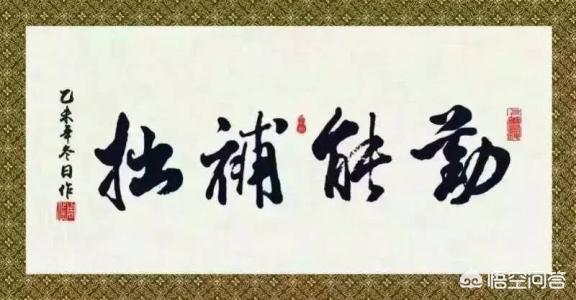 勤能補拙
乙未年冬日作
悟空问答